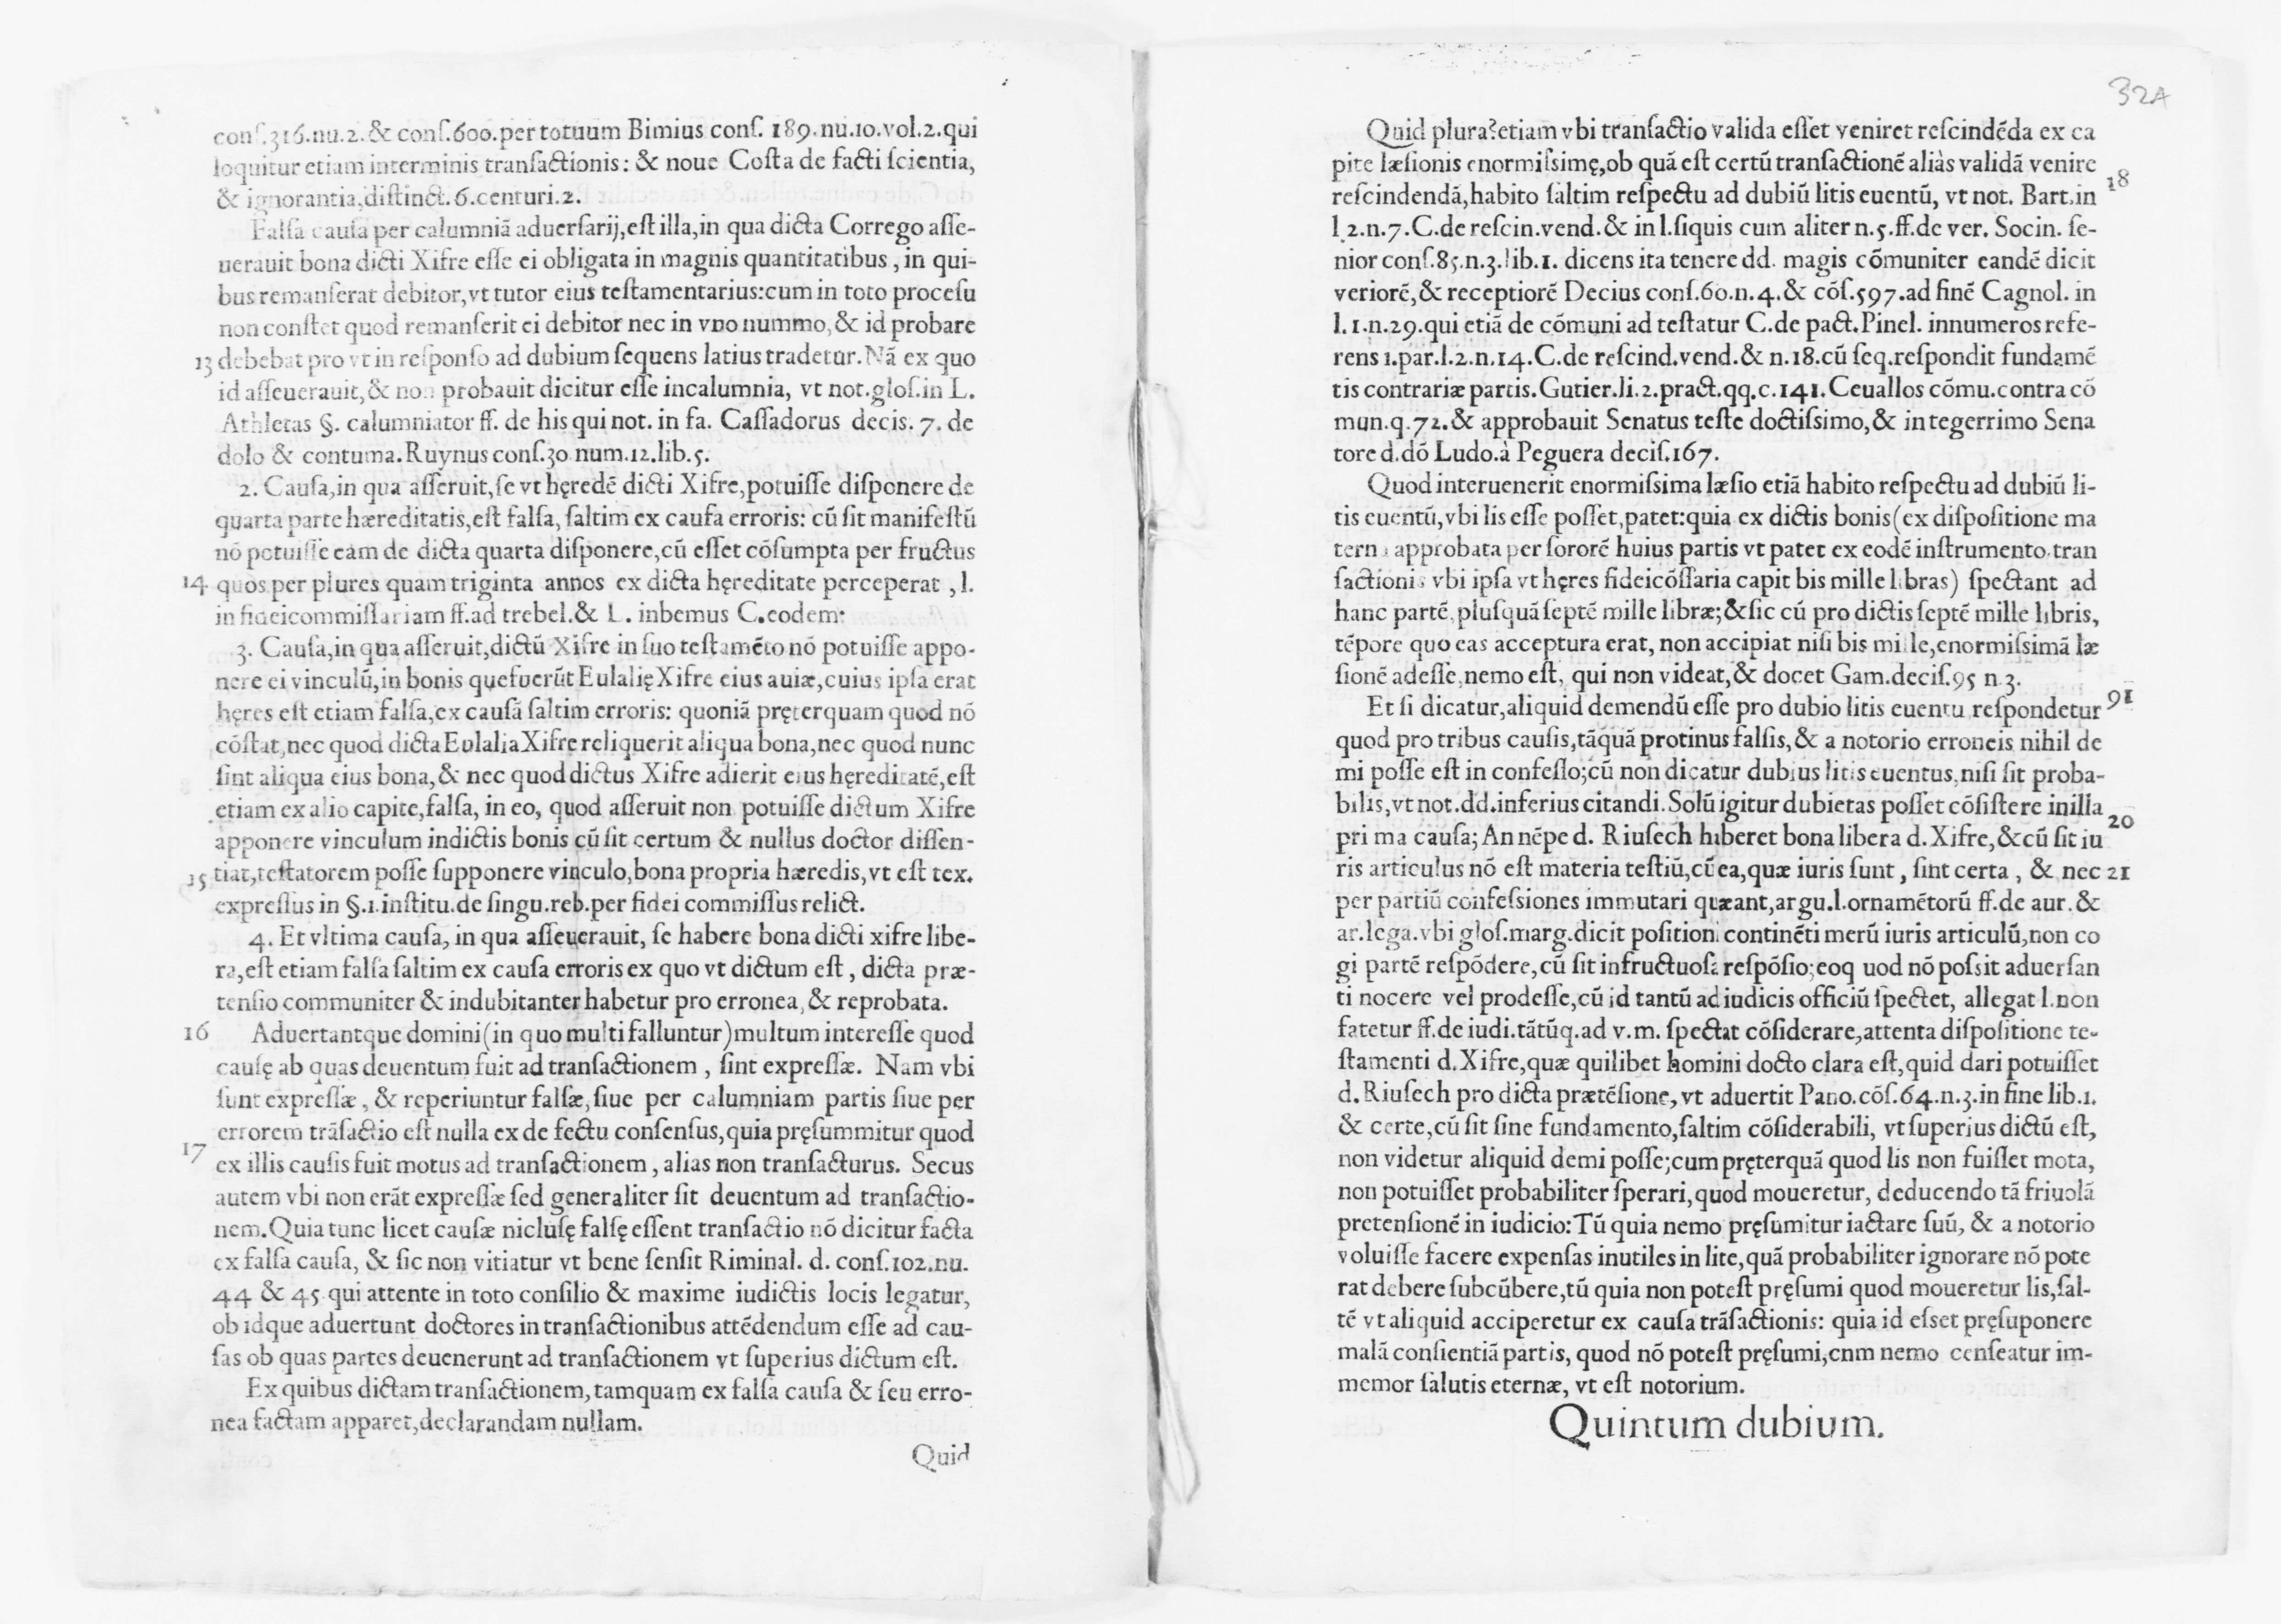 conſ.316.nu.2.& conſ.600.per totuum Bimius conſ. 189.nu.10.vol.2.qui
loquitur etiam interminis tranſactionis: & noue Coſta de facti ſcientia,
& ignorantia,diſtinct.6.centuri.2.
Falſa cauſa per calumniā aduerſarij,eſt illa,in qua dicta Corrego aſſe-
uerauit bona dicti Xifre eſſe ei obligata in magnis quantitatibus, in qui-
bus remanſerat debitor,vt tutor eius teſtamentarius:cum in toto proceſu
non conſtet quod remanſerit ei debitor nec in vno nummo,& id probare
13 debebat pro vt in reſponſo ad dubium ſequens latius tradetur.Nā ex quo
id aſſeuerauit,& non probauit dicitur eſſe incalumnia, vt not.gloſ.in L.
Athletas §. calumniator ff. de his qui not. in fa. Caſſadorus decis. 7. de
dolo & contuma.Ruynus conſ.30 num.12.lib.5.
2. Cauſa,in qua aſſeruit,ſe vt hęredē dicti Xifre,potuiſſe diſponere de
quarta parte hæreditatis,eſt falſa, ſaltim ex cauſa erroris: cū ſit manifeſtū
nō potuiſſe eam de dicta quarta diſponere,cū eſſet cōſumpta per fructus
14 quos per plures quam triginta annos ex dicta hęreditate perceperat, l.
in fideicommiſſariam ff.ad trebel.& L. inbemus C.eodem:
3. Cauſa,in qua aſſeruit,dictū Xifre in ſuo teſtamēto nō potuiſſe appo-
nere ei vinculū,in bonis quefuerūt Eulalię Xifre eius auiæ,cuius ipſa erat
hęres eſt etiam falſa,ex cauſā ſaltim erroris: quoniā pręterquam quod nō
cōſtat,nec quod dicta Eulalia Xifre reliquerit aliqua bona,nec quod nunc
ſint aliqua eius bona,& nec quod dictus Xifre adierit eius hęreditatē,eſt
etiam ex alio capite,falſa, in eo, quod aſſeruit non potuiſſe dictum Xifre
apponere vinculum indictis bonis cū ſit certum & nullus doctor diſſen-
15 tiat,teſtatorem poſſe ſupponere vinculo,bona propria hæredis,vt eſt tex.
expreſſus in §.1.inſtitu.de ſingu.reb.per fidei commiſſus relict.
4. Et vltima cauſa, in qua aſſeuerauit, ſe habere bona dicti xifre libe-
ra,eſt etiam falſa ſaltim ex cauſa erroris ex quo vt dictum eſt, dicta præ-
tenſio communiter & indubitanter habetur pro erronea, & reprobata.
16 Aduertantque domini(in quo multi falluntur)multum intereſſe quod
cauſę ab quas deuentum fuit ad tranſactionem, ſint expreſſæ. Nam vbi
ſunt expreſſæ, & reperiuntur falſæ, ſiue per calumniam partis ſiue per
errorem trāſactio eſt nulla ex de fectu conſenſus,quia pręſummitur quod
17 ex illis cauſis fuit motus ad tranſactionem, alias non tranſacturus. Secus
autem vbi non erāt expreſſæ ſed generaliter ſit deuentum ad tranſactio-
nem.Quia tunc licet cauſæ nicluſę falſę eſſent tranſactio nō dicitur facta
ex falſa cauſa, & ſic non vitiatur vt bene ſenſit Riminal. d. conſ.102.nu.
44 & 45 qui attente in toto conſilio & maxime iudictis locis legatur,
ob idque aduertunt doctores in tranſactionibus attēdendum eſſe ad cau-
ſas ob quas partes deuenerunt ad tranſactionem vt ſuperius dictum eſt.
Ex quibus dictam tranſactionem, tamquam ex falſa cauſa & ſeu erro-
nea factam apparet,declarandam nullam.
Quid
32A
Quid plura?etiam vbi tranſactio valida eſſet veniret reſcindēda ex ca
pite læſionis enormiſsimę,ob quā eſt certū tranſactionē aliàs validā venire
reſcindendā,habito ſaltim reſpectu ad dubiū litis euentū, vt not. Bart.in 18
l.2.n.7.C.de reſcin.vend.& in l.ſiquis cum aliter n.5.ff.de ver. Socin. ſe-
nior conſ.85.n.3.lib.1. dicens ita tenere dd. magis cōmuniter eandē dicit
veriorē,& receptiorē Decius conſ.60.n.4.& cōſ.597.ad finē Cagnol. in
l.1.n.29.qui etiā de cōmuni ad teſtatur C.de pact.Pinel. innumeros refe-
rens 1.par.l.2.n.14.C.de reſcind.vend.& n.18.cū ſeq.reſpondit fundamē
tis contrariæ partis.Gutier.li.2.pract.qq.c.141.Ceuallos cōmu.contra cō
mun.q.72.& approbauit Senatus teſte doctiſsimo,& integerrimo Sena
tore d.dō Ludo.à Peguera deciſ.167.
Quod interuenerit enormiſsima læſio etiā habito reſpectu ad dubiū li-
tis euentū,vbi lis eſſe poſſet,patet:quia ex dictis bonis(ex diſpoſitione ma
terna approbata per ſororē huius partis vt patet ex eodē inſtrumento tran
ſactionis vbi ipſa vt hęres fideicōſſaria capit bis mille libras) ſpectant ad
hanc partē, pluſquā ſeptē mille libræ;&ſic cū pro dictis ſeptē mille libris,
tēpore quo eas acceptura erat, non accipiat niſi bis mille,enormiſsimā læ
ſionē adeſſe,nemo eſt, qui non videat,& docet Gam.deciſ.95 n.3.
Et ſi dicatur,aliquid demendū eſſe pro dubio litis euentu,reſpondetur 91
quod pro tribus cauſis,tāquā protinus falſis,& a notorio erroneis nihil de
mi poſſe eſt in confeſſo;cū non dicatur dubius litis euentus,niſi ſit proba-
bilis,vt not.dd.inferius citandi.Solū igitur dubietas poſſet cōſiſtere inilla
pri ma cauſa; An nēpe d. Riuſech haberet bona libera d.Xifre,&cū ſit iu 20
ris articulus nō eſt materia teſtiū,cū ea,quæ iuris ſunt, ſint certa, & nec 21
per partiū confeſsiones immutari quæant,argu.l.ornamētorū ff.de aur.&
ar.lega.vbi gloſ.marg.dicit poſitioni continēti merū iuris articulū,non co
gi partē reſpōdere,cū ſit infructuoſa reſpōſio;eoq uod nō poſsit aduerſan
ti nocere vel prodeſſe,cū id tantū ad iudicis officiū ſpectet, allegat l.non
fatetur ff.de iudi.tātūq.ad v.m. ſpectat cōſiderare,attenta diſpoſitione te-
ſtamenti d.Xifre,quæ quilibet homini docto clara eſt,quid dari potuiſſet
d.Riuſech pro dicta prætēſione, vt aduertit Pano.cōſ.64.n.3.in fine lib.1.
& certe,cū ſit ſine fundamento,ſaltim cōſiderabili, vt ſuperius dictū eſt,
non videtur aliquid demi poſſe;cum pręterquā quod lis non fuiſſet mota,
non potuiſſet probabiliter ſperari,quod moueretur, deducendo tā friuolā
pretenſionē in iudicio:Tū quia nemo pręſumitur iactare ſuū, & a notorio
voluiſſe facere expenſas inutiles in lite,quā probabiliter ignorare nō pote
rat debere ſubcūbere,tū quia non poteſt pręſumi quod moueretur lis,ſal-
tē vt aliquid acciperetur ex cauſa trāſactionis: quia id eſset pręſuponere
malā conſientiā partis, quod nō poteſt pręſumi,cnm nemo cenſeatur im-
memor ſalutis eternæ, vt eſt notorium.
Quintum dubium.